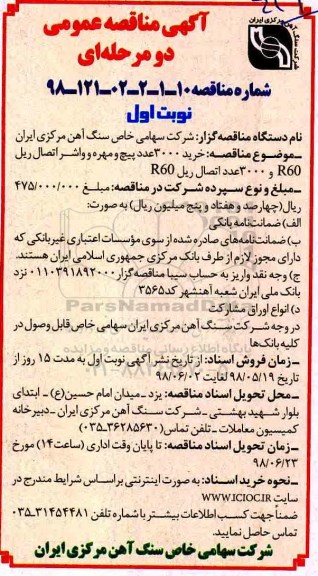 شرکت سنگ آهن مرکزی ایران
آگهی مناقصه عمومی
دو مرحله‌ای
شماره مناقصه ۱۰-۱-۲-۰۲-۱۲۱-۹۸
نوبت اول
نام دستگاه مناقصه گزار: شرکت سهامی خاص سنگ آهن مرکزی ایران
ـ موضوع مناقصه: خرید ۳۰۰۰ عدد پیچ و مهره و واشر اتصال ریل
R60 و ۳۰۰۰ عدد اتصال ریل R60
ـ مبلغ و نوع سپرده شرکت در مناقصه: مبلغ ۴۷۵/۰۰۰/۰۰۰
ریال (چهارصد و هفتاد و پنج میلیون ریال) به صورت:
الف) ضمانت‌نامه بانکی
ب) ضمانت‌نامه‌های صادره شده از سوی مؤسسات اعتباری غیربانکی که
دارای مجوز لازم از طرف بانک مرکزی جمهوری اسلامی ایران هستند.
ج) وجه نقد واریز به حساب سیبا مناقصه گزار ۰۱۱۰۳۹۱۸۹۲۰۰۰ نزد
بانک ملی ایران شعبه آهنشهر کد ۳۵۶۵
د) انواع اوراق مشارکت
در وجه شرکت سنگ آهن مرکزی ایران سهامی خاص قابل وصول در
کلیه بانک‌ها
ـ زمان فروش اسناد: از تاریخ نشر آگهی نوبت اول به مدت ۱۵ روز از
تاریخ ۹۸/۰۵/۱۹ لغایت ۹۸/۰۶/۰۲
ـ محل تحویل اسناد مناقصه: یزد ـ میدان امام حسین(ع) ـ ابتدای
بلوار شهید بهشتی ـ شرکت سنگ آهن مرکزی ایران ـ دبیرخانه
کمیسیون معاملات ـ تلفن تماس (۳۶۲۸۵۶۳۰-۰۳۵)
ـ زمان تحویل اسناد مناقصه: تا پایان وقت اداری (ساعت ۱۴) مورخ
۹۸/۰۶/۲۳
ـ نحوه خرید اسناد: به صورت اینترنتی براساس شرایط مندرج در
سایت WWW.ICIOC.IR
ضمناً جهت کسب اطلاعات بیشتر با شماره تلفن ۳۱۴۵۴۴۸۱-۰۳۵
تماس حاصل نمایید.
شرکت سهامی خاص سنگ آهن مرکزی ایران